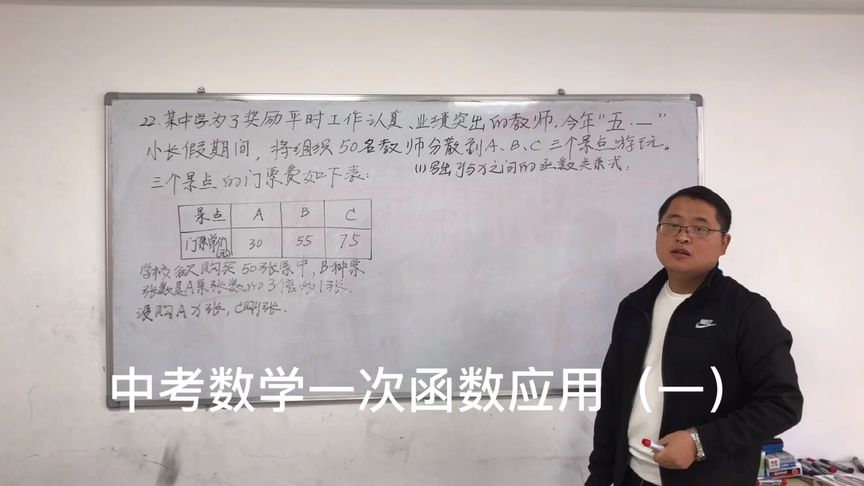 22.某中学为了奖励平时工作认真、业绩突出的教师，今年“五·一”
小长假期间，将组织50名教师分散到A、B、C三个景点游玩。
三个景点的门票费如下表：
(1)写出y与x之间的函数关系式；
景点 A B C
门票单价 30 55 75
学校购买50张票中，B种票
张数是A票张数的3倍 1张.
设购A为x张，C为y张.
中考数学一次函数应用（一）
NIKE